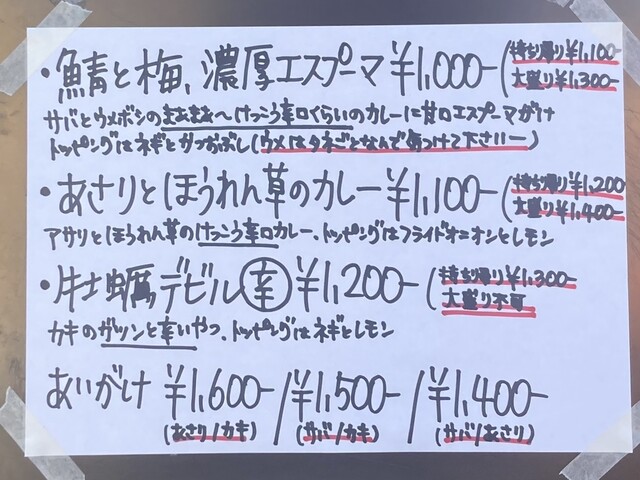 ・鯖と梅、濃厚エスプーマ ¥1,000-(持ち帰り¥1,100- 大盛り¥1,300-
サバとウメボシのまあまあ〜けっこう辛口くらいのカレーに甘口エスプーマがけ
トッピングはネギとかつおぶし(ウメはタネごとなんで気つけて下さいー)
・あさりとほうれん草のカレー ¥1,100-(持ち帰り¥1,200 大盛り¥1,400-
アサリとほうれん草のけっこう辛口カレー、トッピングはフライドオニオンとレモン
・牡蠣デビル㊛ ¥1,200-(持ち帰り¥1,300- 大盛り不可
カキのガツンと辛いやつ、トッピングはネギとレモン
あいがけ ¥1,600-/¥1,500-/¥1,400-
(あさり/カキ) (サバ/カキ) (サバ/あさり)